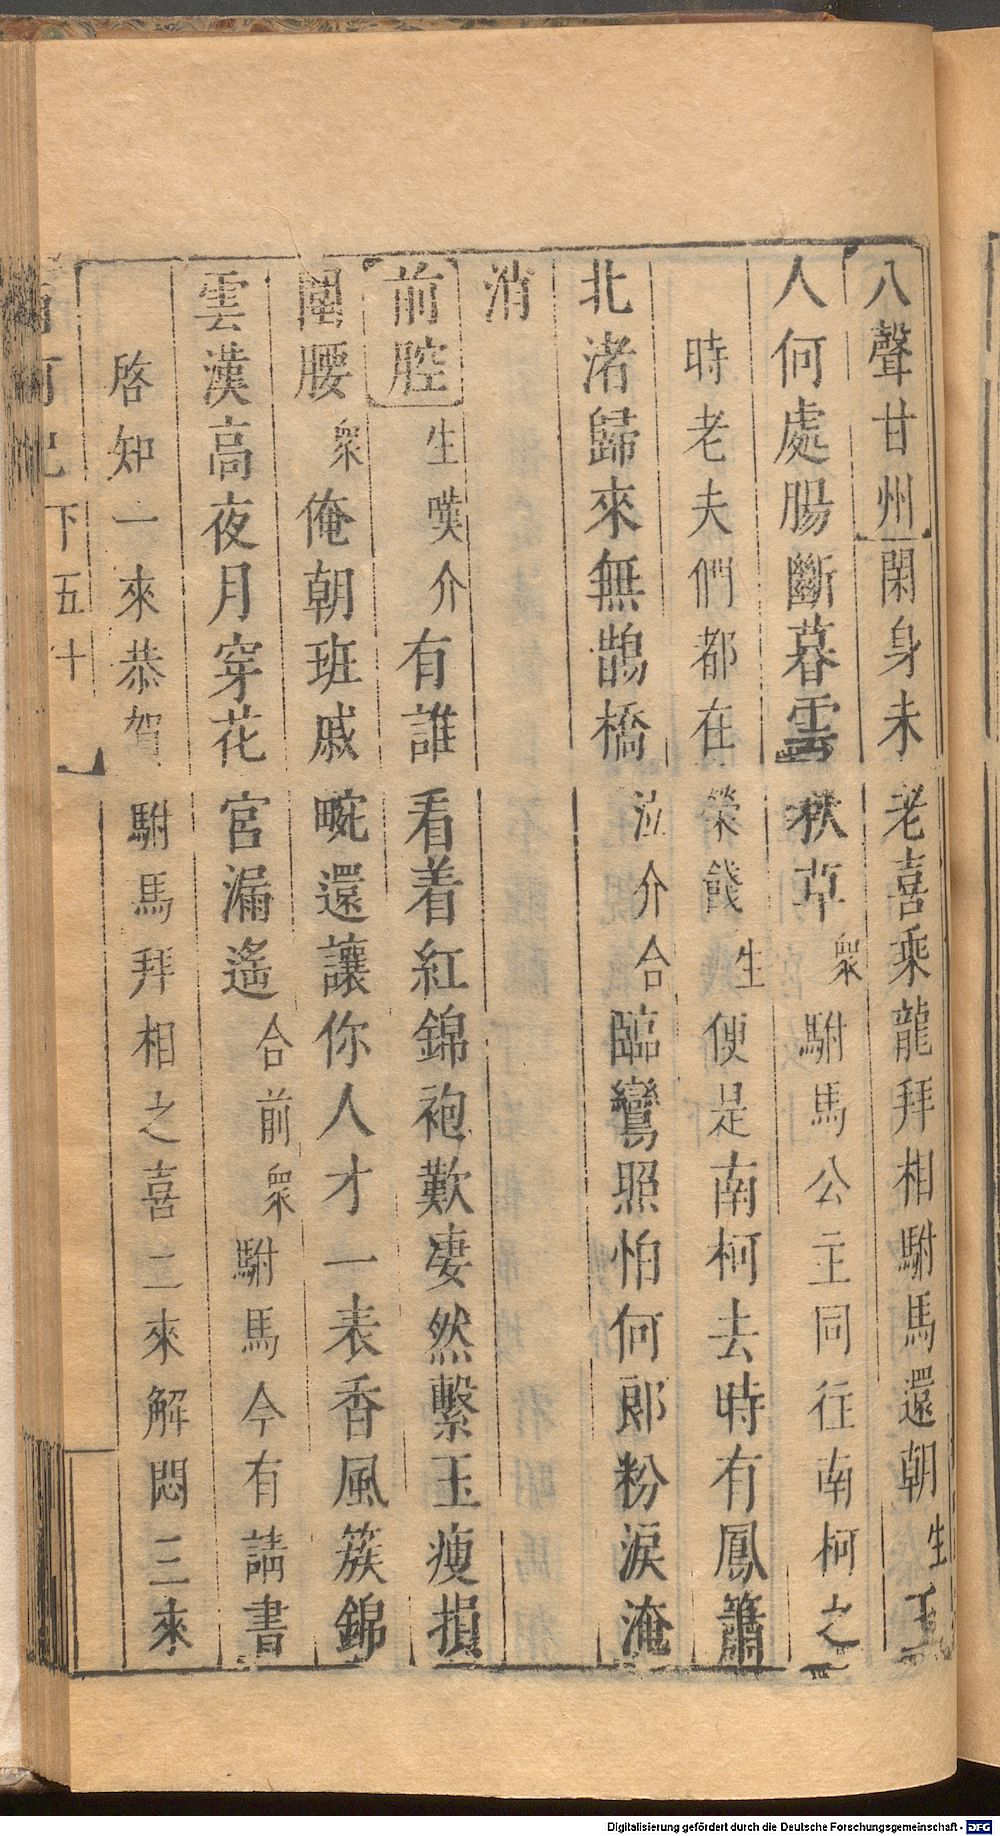 八聲甘州閑身未老喜乘龍拜相駙馬還朝生玉
人何處腸斷暮雲秋草衆駙馬公主同往南柯之
時老夫們都在榮餞生便是南柯去時有鳳簫
北渚歸來無鵲橋泣介合臨鸞照怕何郎粉淚淹
消
前腔生嘆介有誰看着紅錦袍歎凄然繫玉瘦損
圍腰衆俺朝班戚畹還讓你人才一表香風簇錦
雲漢高夜月穿花宮漏遙合前衆駙馬今有請書
啓知一來恭賀駙馬拜相之喜二來解悶三來
下五十
Digitalisierung gefördert durch die Deutsche Forschungsgemeinschaft - DFG